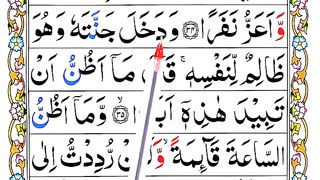 وَّاَعَزُّ نَفَرًا ۝٣٤ وَدَخَلَ جَنَّتَهٗ وَهُوَ
ظَالِمٌ لِّنَفْسِهٖ ۚ مَاۤ اَظُنُّ اَنْ
تَبِيْدَ هٰذِهٖۤ ۝٣٥ وَّمَاۤ اَظُنُّ
السَّاعَةَ قَآئِمَةً رُّدِدْتُّ اِلٰى